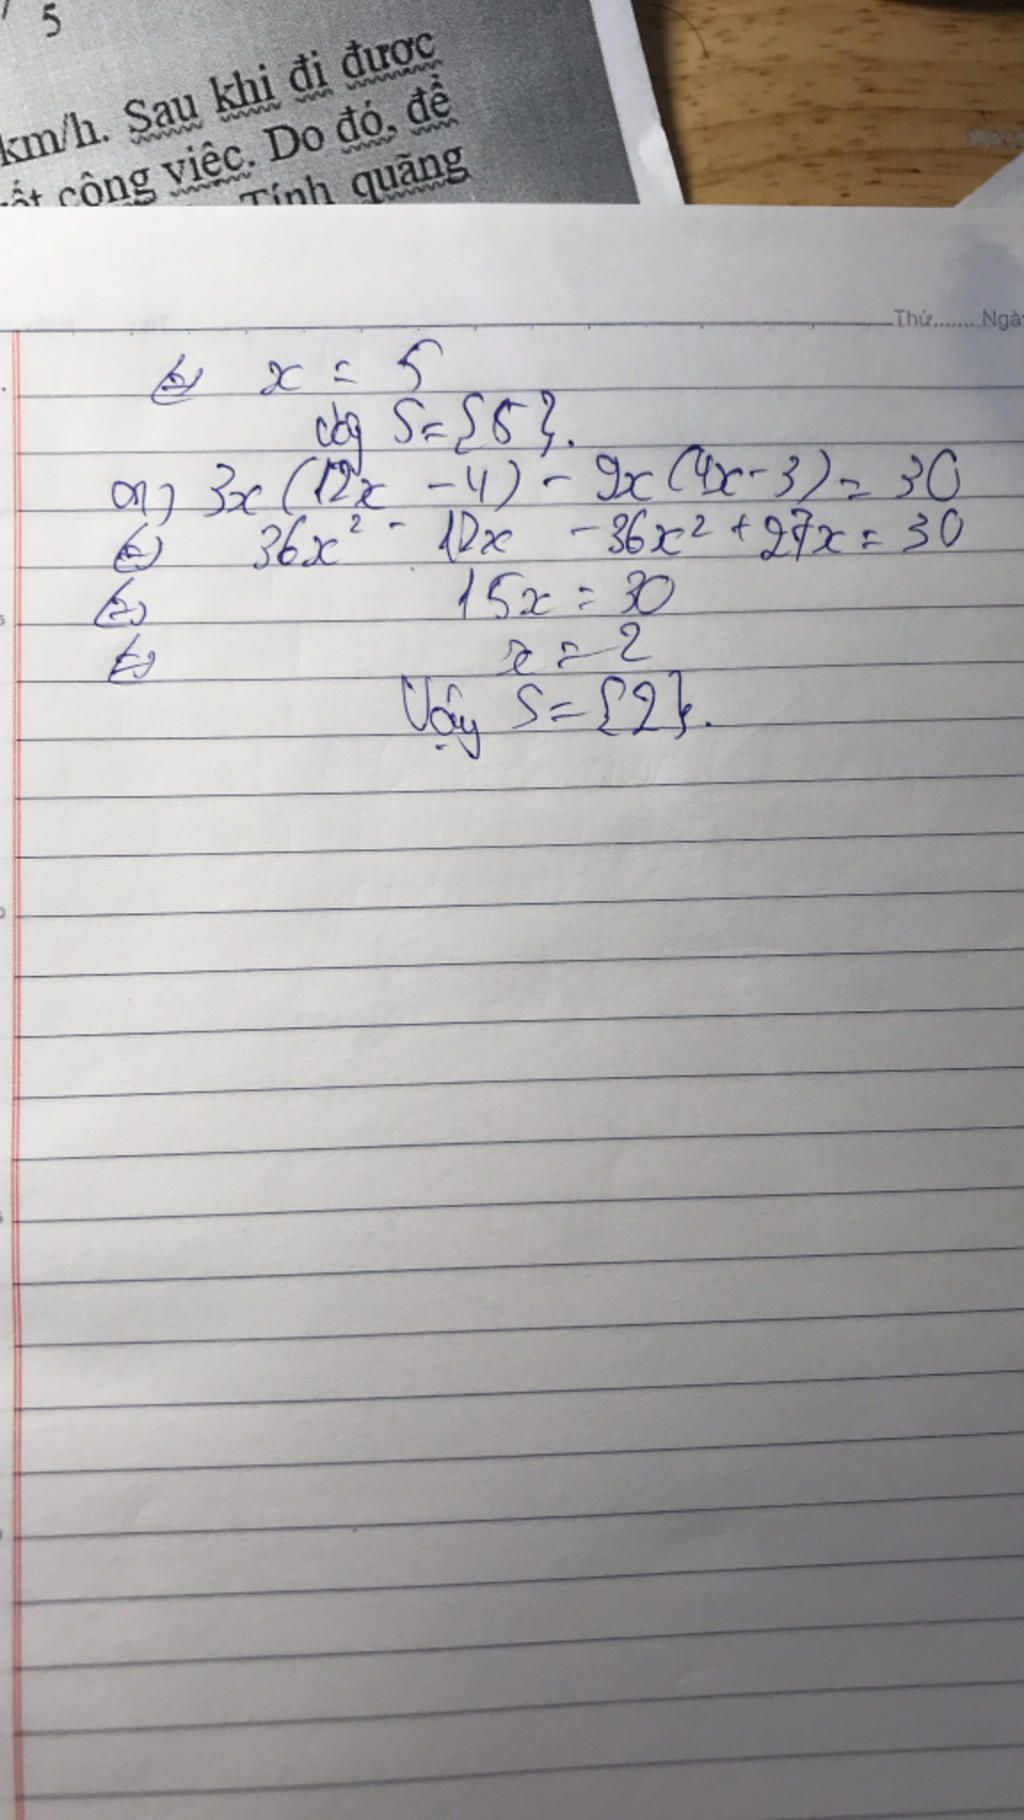 5
km/h. Sau khi đi được
ất công việc. Do đó, để
Tính quãng
Thứ....... Ngày
⇔ x = 5
Vậy S = {5}.
m) 3x (12x - 4) - 9x (4x - 3) = 30
⇔ 36x² - 12x - 36x² + 27x = 30
⇔ 15x = 30
⇔ x = 2
Vậy S = {2}.